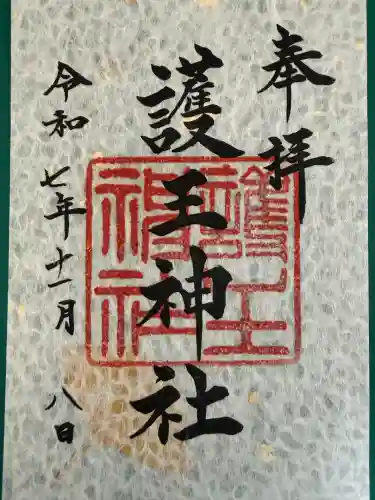 奉拝
護王神社
護王神社
令和七年十一月八日